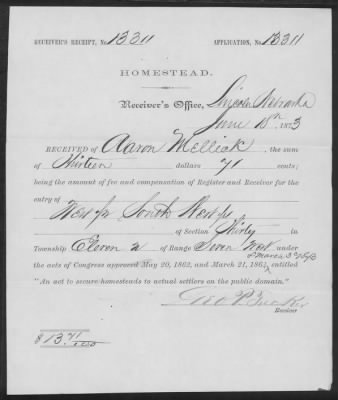 RECEIVER'S RECEIPT, No. 13311 APPLICATION, No. 13311
HOMESTEAD.
Receiver's Office, Lincoln Nebraska
June 18th, 1873
RECEIVED of Aaron Mellick the sum
of Thirteen dollars 71 cents;
being the amount of fee and compensation of Register and Receiver for the
entry of
West ½ South West ¼
of Section Thirty in
Township Eleven N of Range Seven West under
& March 3d
the acts of Congress approved May 20, 1862, and March 21, 1864, entitled
"An act to secure homesteads to actual settlers on the public domain."
Geo P. Tucker
Receiver
$13.71/100